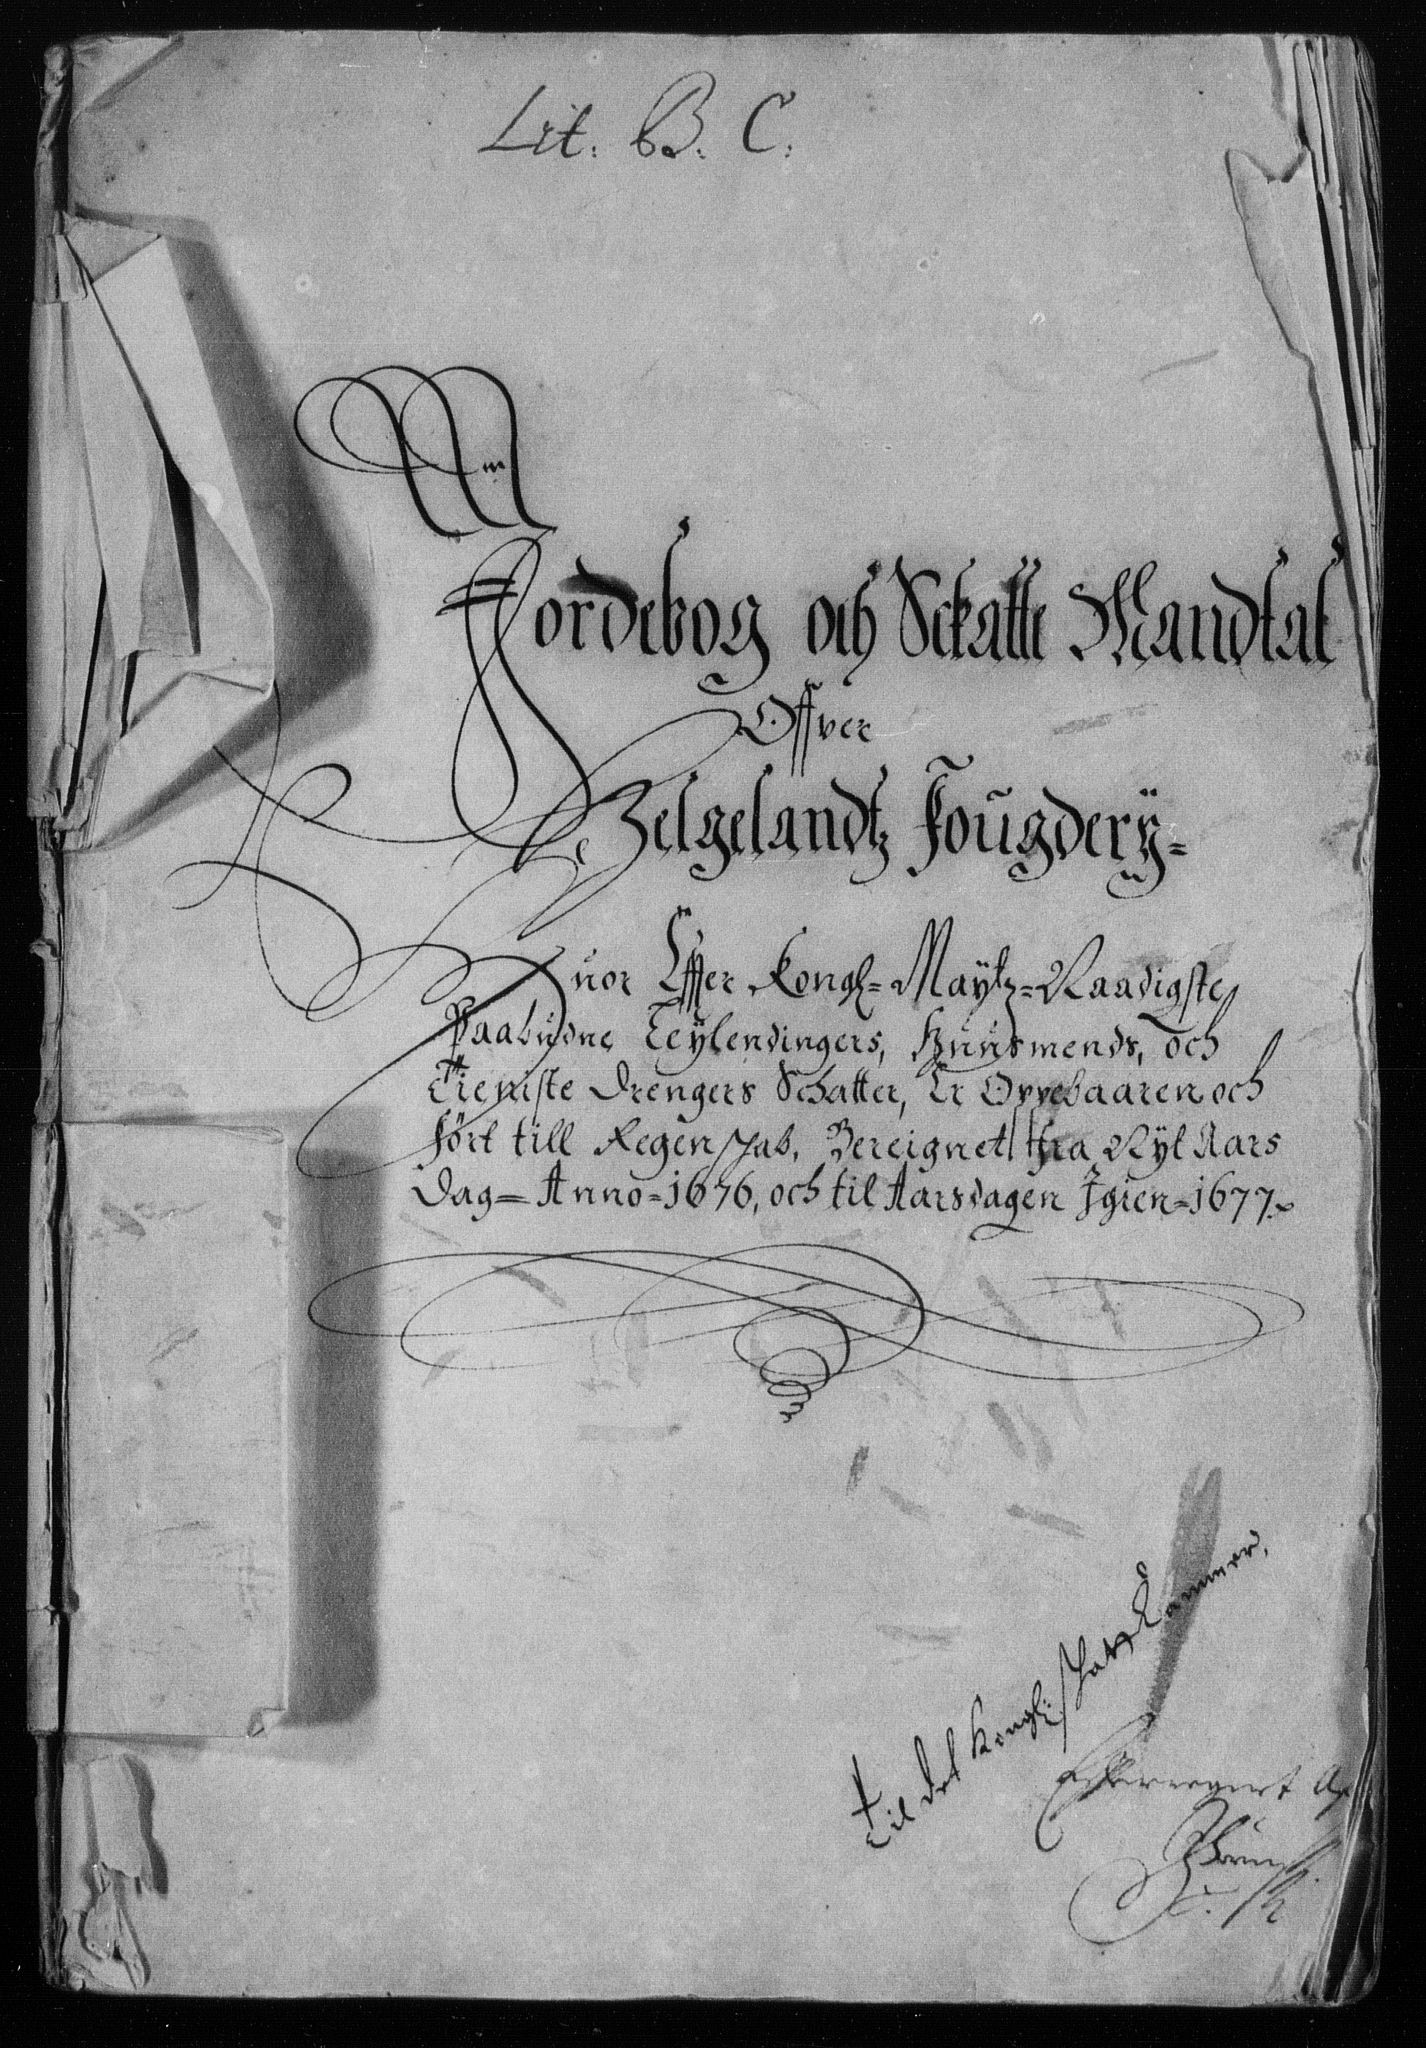 Lit. B. C.
Jordebog och Sckatte Mandtal
Offver
Helgelandtz Fougdery=
Huor Effter Kongl= Maytz= Naadigste
Paabudne Leylendingers, Huusmends, och
Tieniste Drengers Schatter, Er Oppebaaren och
fört till Regenskab, Bereignet fra Nyt Aars
Dag= Anno=1676, och til Aarsdagen Igien=1677.
Til det kongl: skatz Cammer.